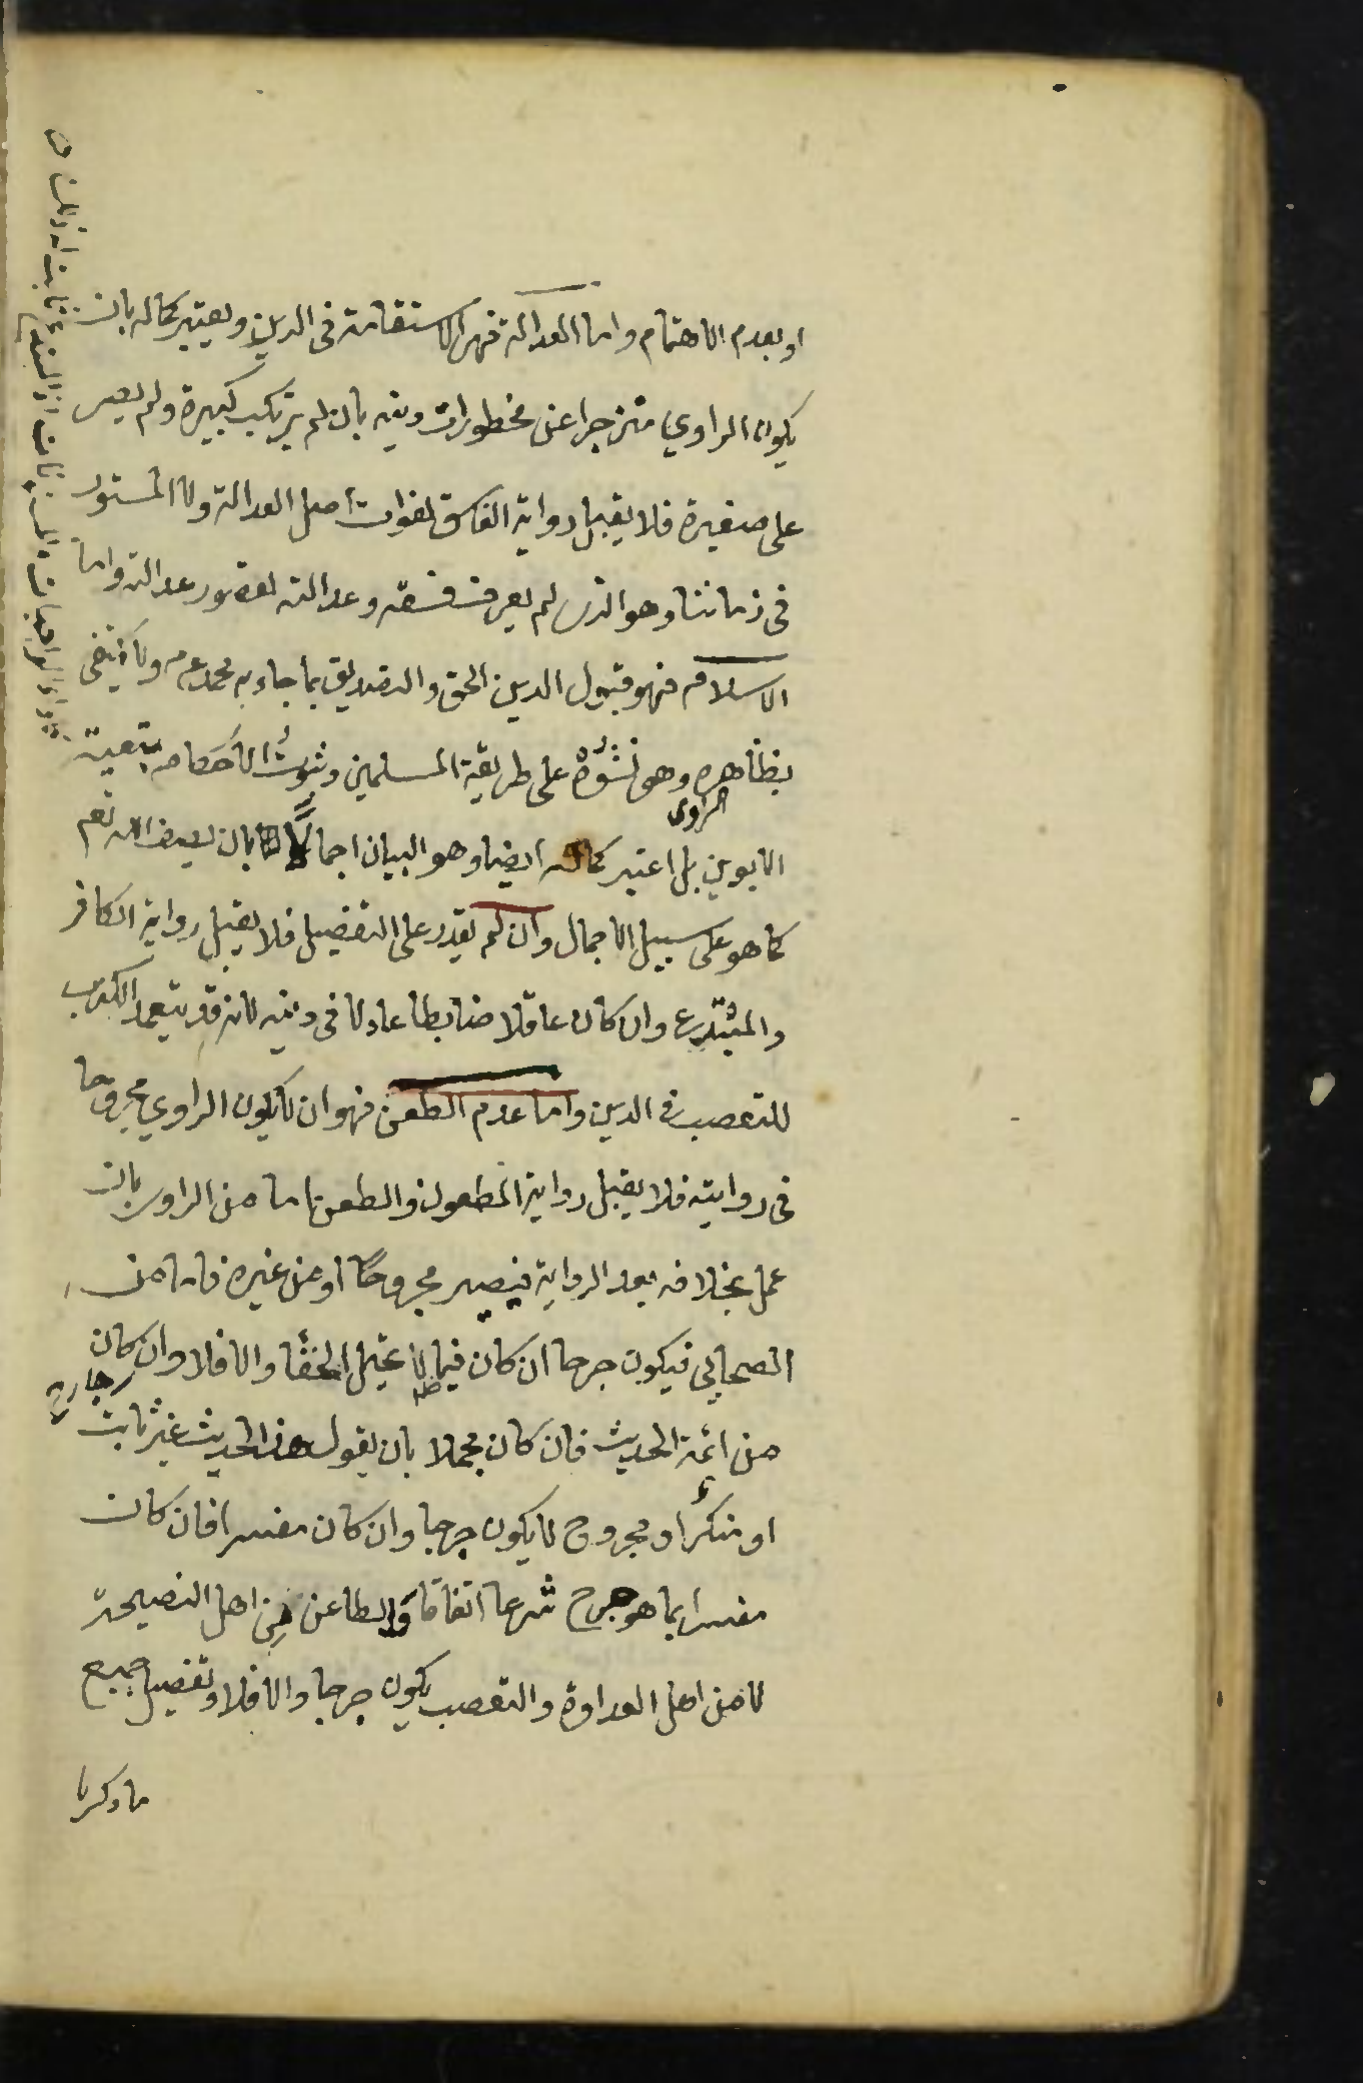 او بعدم الاهتمام واما العدالة فهى الاستقامة فى الدين ويعتبر كماله بان
يكون الراوي منزجرا عن محظورات دينه بان لم يرتكب كبيرة ولم يصر
على صغيرة فلا يقبل رواية الفاسق لفوات اصل العدالة ولا المستور
فى زماننا وهو الذى لم يعرف فسقه وعدالته لقصور عدالته واما
الاسلام فهو قبول الدين الحق والتصديق بما جاء به محمد عم ولا يكتفى
بظاهره وهو نشؤه على طريقة المسلمين وثبوت الاحكام بتبعية
الابوين بل اعتبر كماله ايضا وهو البيان اجمالا بان يصف الله تعم
الراوى
كما هو على سبيل الاجمال وان لم يقدر على التفصيل فلا يقبل رواية الكافر
والمبتدع وان كان عاقلا ضابطا عادلا فى دينه لانه قد يتعمد الكذب
للتعصب فى الدين واما عدم الطعن فهو ان لا يكون الراوي مجروحا
فى روايته فلا يقبل رواية المطعون والطعن اما من الراوى بان
عمل بخلافه بعد الرواية فيصير مجروحا او من غيره فاما من
الصحابي فيكون جرحا ان كان فيما لا يحتمل الخفا والا فلا وان كان
من ائمة الحديث فان كان مجملا بان يقول هذا الحديث غير ثابت
او منكر او مجروح لا يكون جرحا وان كان مفسرا فان كان
مفسرا بما هو جرح شرعا اتفاقا والطاعن من اهل النصيحة
لا من اهل العداوة والتعصب يكون جرحا والا فلا وتفصيل جميع
ما ذكرنا